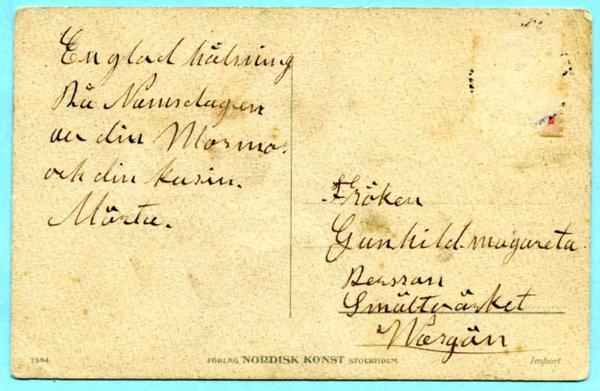 En glad hälsning
På Namsdagen
av din Mormor
och din kusin.
Märta.
Fröken
Gunhild magareta
Persson
Smältvärket
Wargän
2594
FÖRLAG NORDISK KONST STOCKHOLM
Import